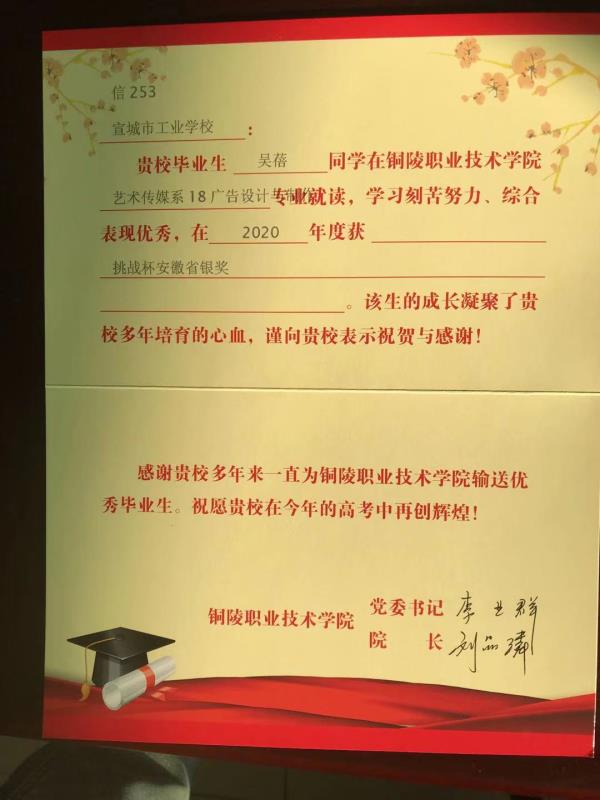 信 253
宣城市工业学校：
贵校毕业生 吴蓓 同学在铜陵职业技术学院
艺术传媒系 18 广告设计与制作专业就读，学习刻苦努力、综合
表现优秀，在 2020 年度获
挑战杯安徽省银奖
。该生的成长凝聚了贵
校多年培育的心血，谨向贵校表示祝贺与感谢！
感谢贵校多年来一直为铜陵职业技术学院输送优
秀毕业生。祝愿贵校在今年的高考中再创辉煌！
铜陵职业技术学院 党委书记 李业群
院 长 刘